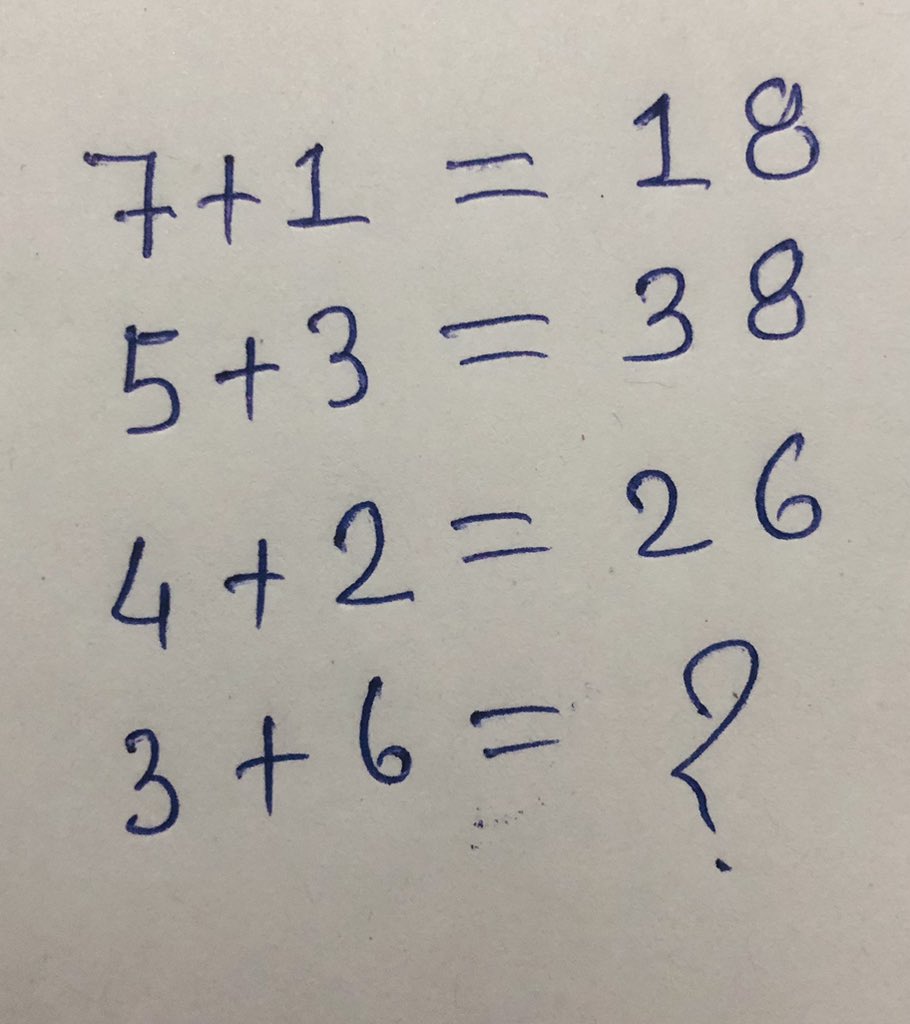 7+1 = 18
5+3 = 38
4+2 = 26
3+6 = ?